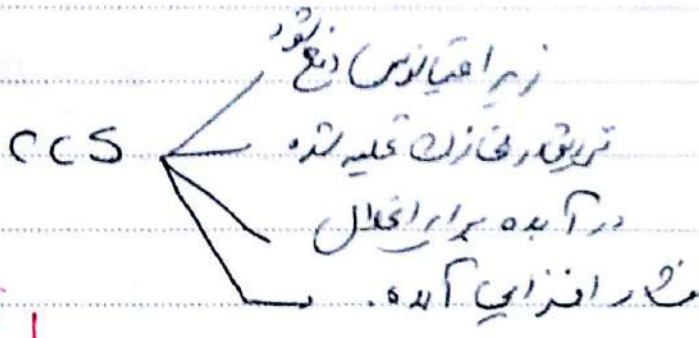 زیر اقیانوس دفع شود
CCS
تزریق در مخازن تخلیه شده
در آبده برای انحلال
فشار افزایی آبده.